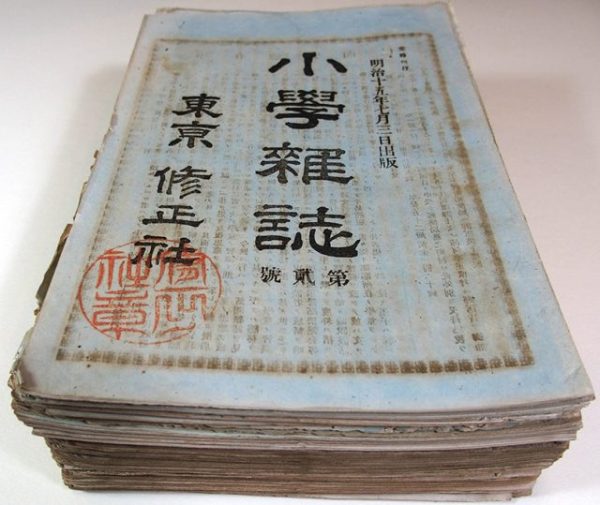 明治十五年七月三日出版
小學雜誌
第貳號
東京 修正社
修正社章